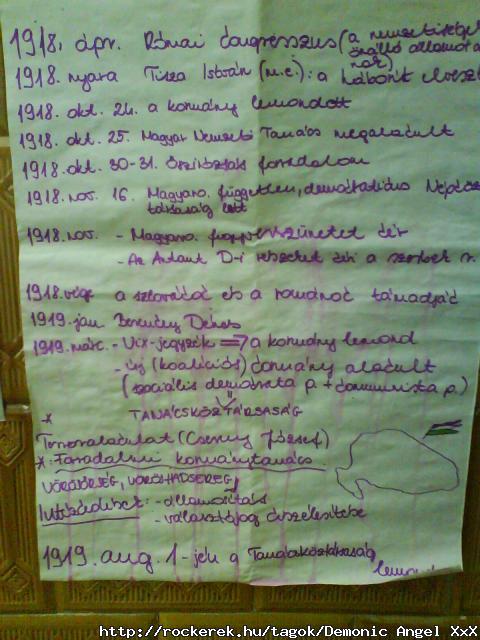 1918. ápr. Római congresszus (a nemzetiségek önálló államot a-
nak)
1918. nyara Tisza István (m.e.): a háborút elveszt
1918. okt. 24. a kormány lemondott
1918. okt. 25. Magyar Nemzeti Tanács megalakult
1918. okt. 30-31. őszirózsás forradalom
1918. nov. 16. Magyaro. független, demokratikus Népköz
társaság lett
1918. nov. - Magyaro. fegyverszünetet kér
- Az Antant D-i részeket kéri a szerbek
1918. vége a szlovákok és a románok támadják
1919. jan Berinkey Dénes
1919. márc. - Vix-jegyzék => a kormány lemond
- új (koalíciós) kormány alakult
(szociális demokrata p. + kommunista p.)
TANÁCSKÖZTÁRSASÁG
*
Terroralakulat (Cserny József)
*: Forradalmi kormánytanács
VÖRÖSŐRSÉG, VÖRÖSHADSEREG
Intézkedések: - államosítás
- választójog kiszélesítése
1919. aug. 1-jén a Tanácsköztársaság
lemond
http://rockerek.hu/tagok/Demonic Angel XxX